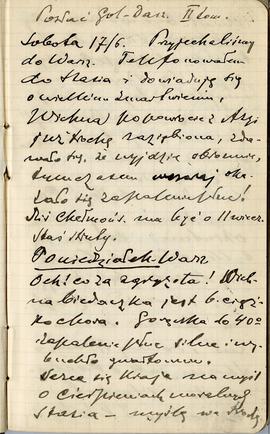 Posłać Goł-Dasz. II tom.
Sobota 17/6. Przyjechaliśmy
do Warsz. Telefonowałem
do Stasia i dowiaduję się
o wielkim zmartwieniu,
Wichna powróciwszy z
już trochę zaziębiona, zda-
wało się, że wyjdzie obronnie,
tymczasem wczoraj oka-
zało się zapalenie płuc!
Dziś Chełmoń. ma być o 11 wiecz.
Staś struty.
Poniedziałek Warsz
Och! co za zgryzota! Wich-
na biedaczka jest b. ciężko
chora. Gorączka do 40°
zapalenie płuc silne i wy-
buchło gwałtownie.
Serce się kraje na myśl
o cierpieniach moralnych
Stasia – myślę we środę